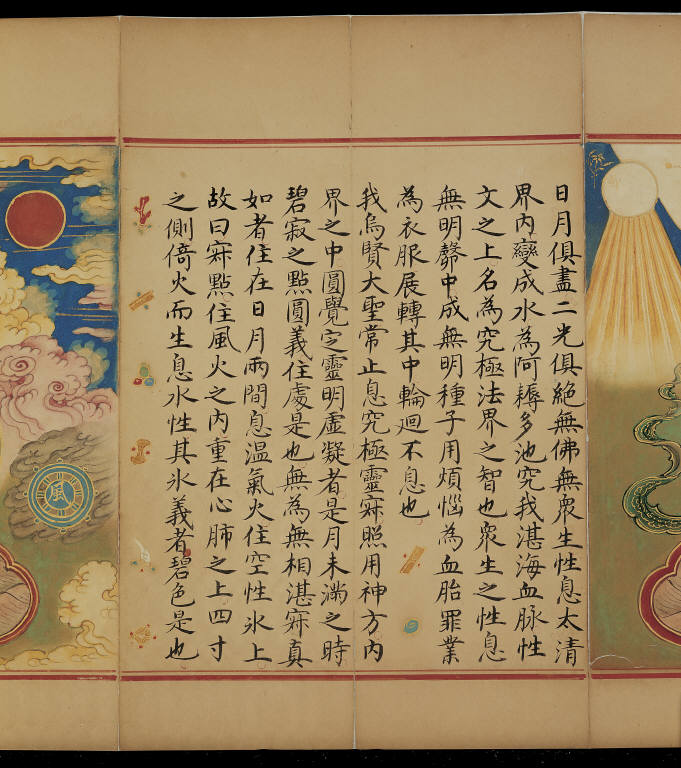 日月俱盡二光俱絕無佛無衆生性息太清
界内變成水為阿耨多池究我湛海血脉性
文之上名為究極法界之智也衆生之性息
無明骵中成無明種子用煩惱為血胎罪業
為衣服展轉其中輪迴不息也
我烏賢大聖常止息究極靈㝧照用神方内
界之中圓覺㝎靈明虚凝者是月未滿之時
碧寂之點圓義住處是也無為無相湛㝧真
如者住在日月兩間息温氣火住空性氷上
故曰㝧點住風火之内重在心肺之上四寸
之側倚火而生息水性其氷義者碧色是也
風